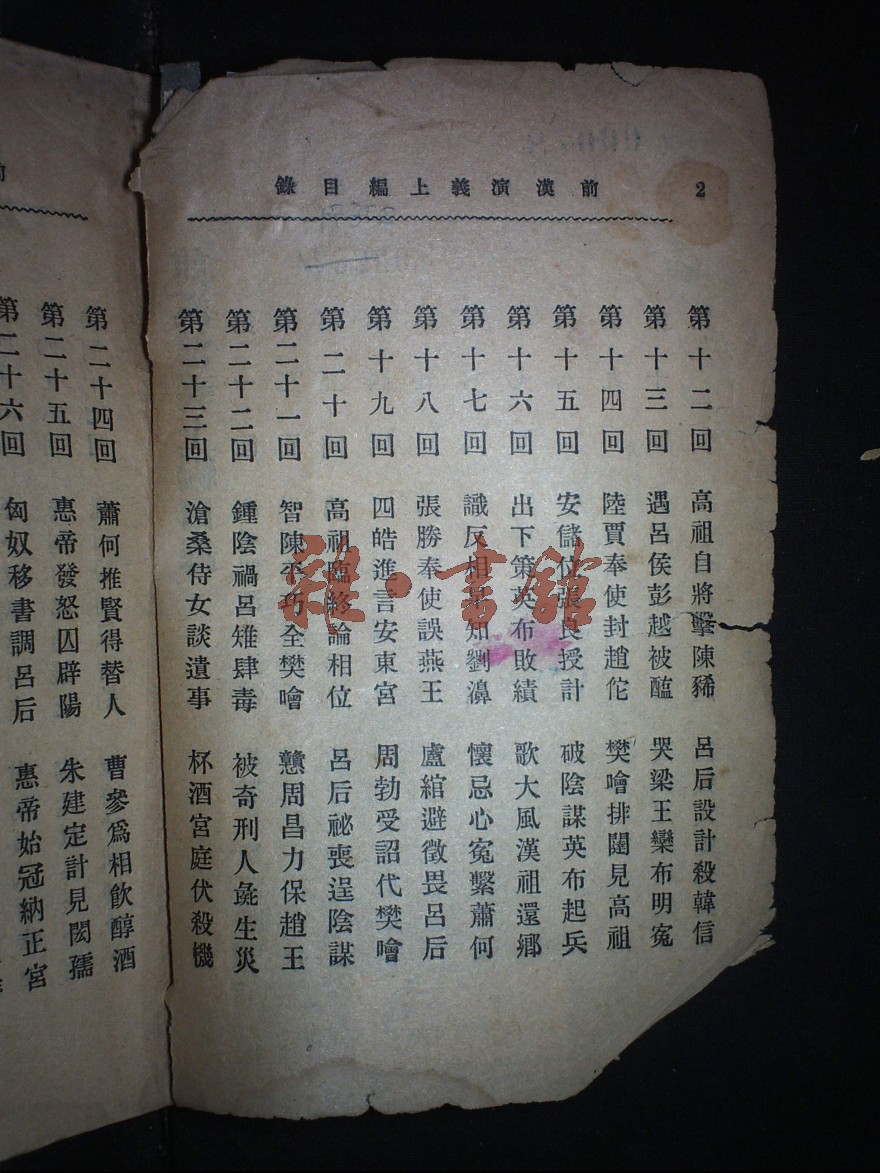 前漢演義上編目錄 2
第十二回 高祖自將擊陳豨 呂后設計殺韓信
第十三回 遇呂侯彭越被醢 哭梁王欒布明冤
第十四回 陸賈奉使封趙佗 樊噲排闥見高祖
第十五回 安儲位張良授計 破陰謀英布起兵
第十六回 出下策英布敗績 歌大風漢祖還鄉
第十七回 識反相 知劉濞 懷忌心冤繫蕭何
第十八回 張勝奉使誤燕王 盧綰避徵畏呂后
第十九回 四皓進言安東宮 周勃受詔代樊噲
第二十回 高祖臨終論相位 呂后祕喪逞陰謀
第二十一回 智陳平巧全樊噲 戇周昌力保趙王
第二十二回 鍾陰禍呂雉肆毒 被奇刑人彘生災
第二十三回 滄桑侍女談遺事 杯酒宮庭伏殺機
第二十四回 蕭何推賢得替人 曹參爲相飲醇酒
第二十五回 惠帝發怒囚辟陽 朱建定計見閎孺
第二十六回 匈奴移書調呂后 惠帝始冠納正宮
雜·書館